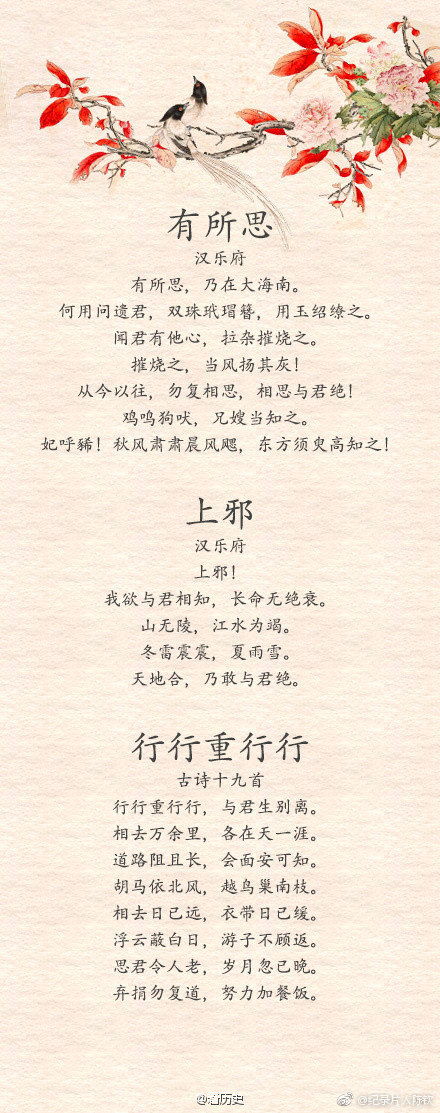 有所思
汉乐府
有所思，乃在大海南。
何用问遗君，双珠玳瑁簪，用玉绍缭之。
闻君有他心，拉杂摧烧之。
摧烧之，当风扬其灰！
从今以往，勿复相思，相思与君绝！
鸡鸣狗吠，兄嫂当知之。
妃呼豨！秋风肃肃晨风飔，东方须臾高知之！
上邪
汉乐府
上邪！
我欲与君相知，长命无绝衰。
山无陵，江水为竭。
冬雷震震，夏雨雪。
天地合，乃敢与君绝。
行行重行行
古诗十九首
行行重行行，与君生别离。
相去万余里，各在天一涯。
道路阻且长，会面安可知。
胡马依北风，越鸟巢南枝。
相去日已远，衣带日已缓。
浮云蔽白日，游子不顾返。
思君令人老，岁月忽已晚。
弃捐勿复道，努力加餐饭。